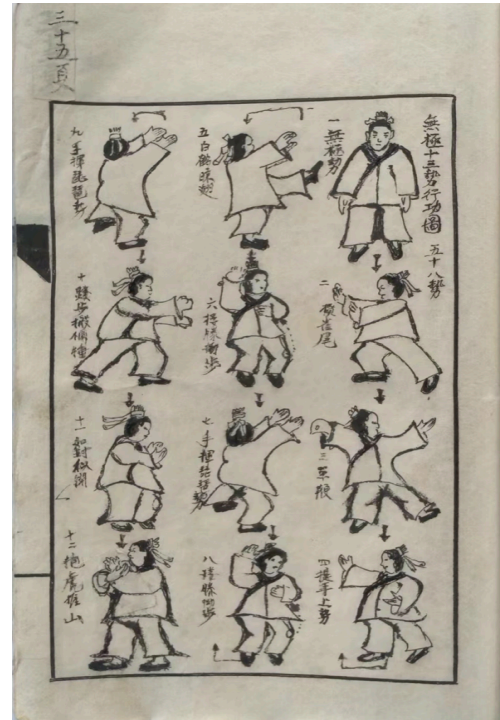 三十五頁
無極十三勢行功圖 五十八勢
一 無極勢
二 攬雀尾
三 單鞭
四 提手上勢
五 白鶴涼翅
六 摟膝拗步
七 手揮琵琶勢
八 摟膝拗步
九 手揮琵琶勢
十 進步搬攔捶
十一 如封似閉
十二 抱虎推山